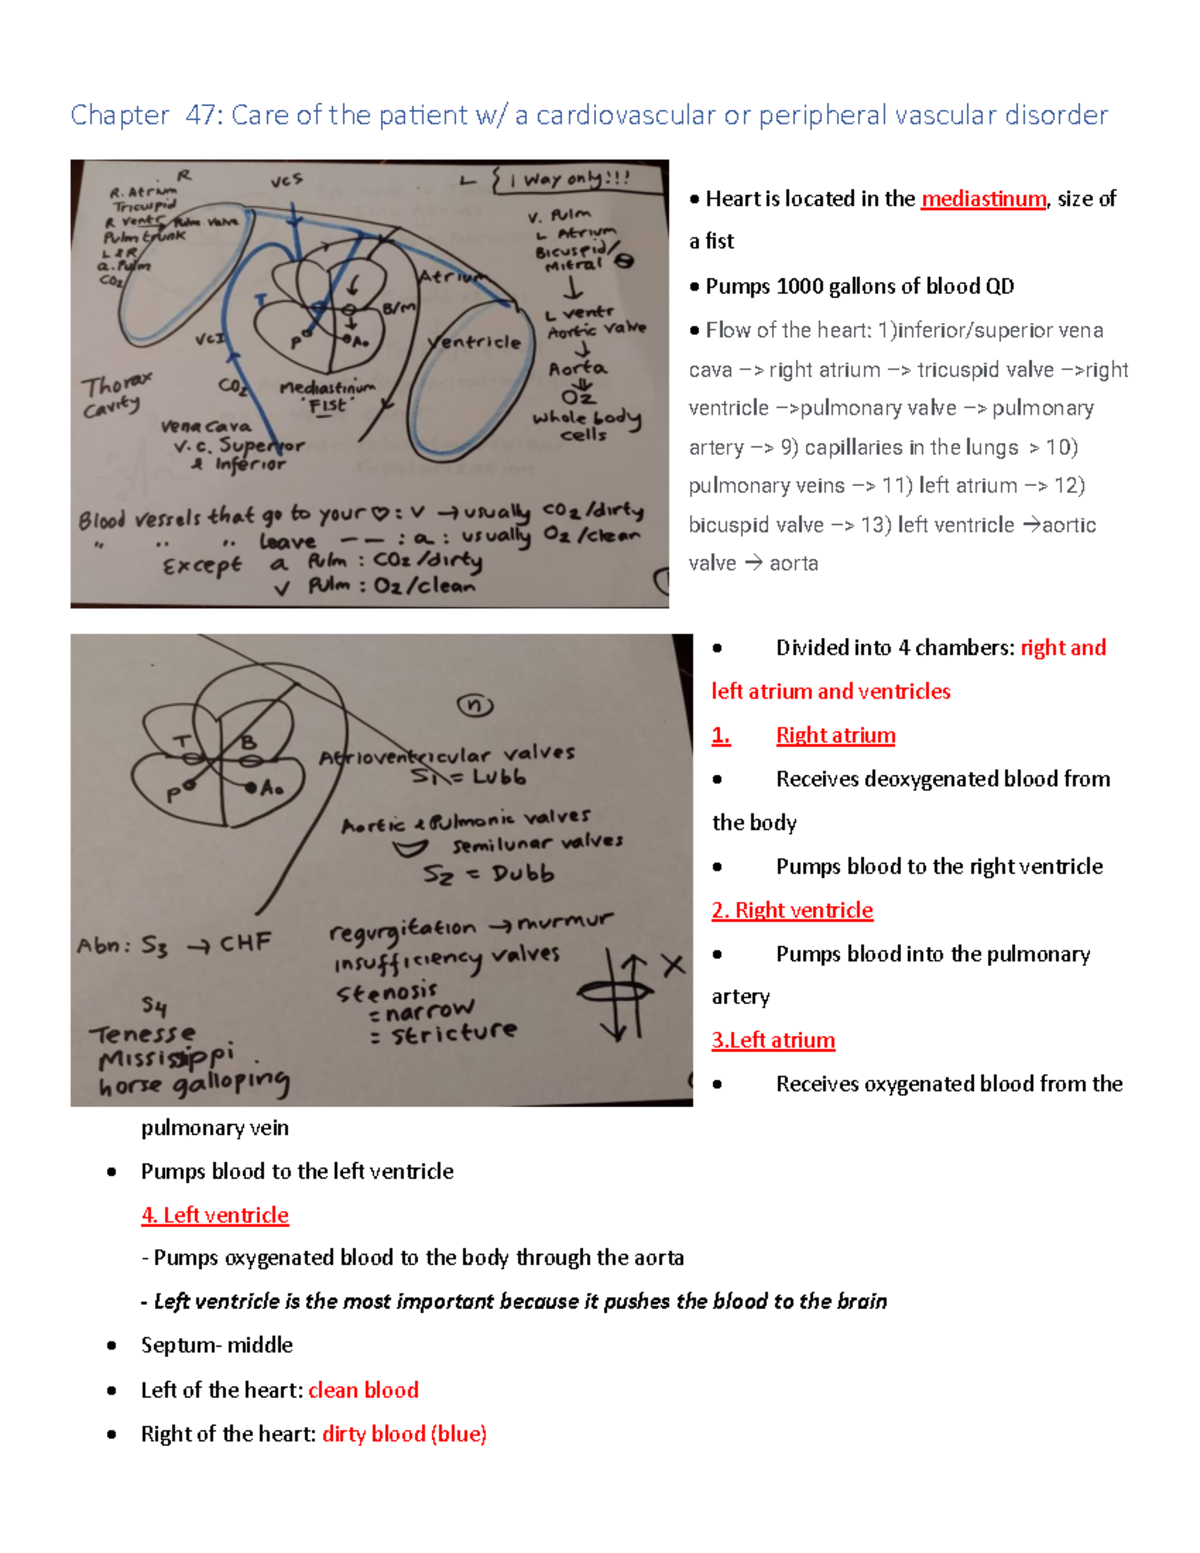 Chapter  47: Care of the patient w/ a cardiovascular or peripheral vascular disorder
R
R. Atrium
Tricuspid
R ventr Pulm. valve
Pulm trunk
L & R
a. Pulm
CO2
VCS
L { 1 way only!!!
V. Pulm
L Atrium
Bicuspid/
Mitral
↓
L ventr
Aortic valve
↓
Aorta
⇓
O2
whole body
cells
Atrium
T
B/M
P
Ao
Ventricle
VCI
CO2
Mediastinum
"FIST"
Thorax
Cavity
Vena Cava
V.C. Superior
& Inferior
Blood vessels that go to your ♡: V → usually CO2/dirty
" " " leave — — : a : usually O2/clean
Except a Pulm : CO2/dirty
V Pulm : O2/clean
• Heart is located in the mediastinum, size of
a fist
• Pumps 1000 gallons of blood QD
• Flow of the heart: 1)inferior/superior vena
cava –> right atrium –> tricuspid valve –>right
ventricle –>pulmonary valve –> pulmonary
artery –> 9) capillaries in the lungs  > 10)
pulmonary veins –> 11) left atrium –> 12)
bicuspid valve –> 13) left ventricle →aortic
valve → aorta
n
T
B
P
Ao
Atrioventricular valves
S1 = Lubb
Aortic & Pulmonic valves
semilunar valves
S2 = Dubb
Abn: S3 → CHF
S4
Tenesse
Mississippi
horse galloping
regurgitation → murmur
insufficiency valves
stenosis
= narrow
= stricture
X
• Divided into 4 chambers: right and
left atrium and ventricles
1. Right atrium
• Receives deoxygenated blood from
the body
• Pumps blood to the right ventricle
2. Right ventricle
• Pumps blood into the pulmonary
artery
3.Left atrium
• Receives oxygenated blood from the
pulmonary vein
• Pumps blood to the left ventricle
4. Left ventricle
- Pumps oxygenated blood to the body through the aorta
- Left ventricle is the most important because it pushes the blood to the brain
• Septum- middle
• Left of the heart: clean blood
• Right of the heart: dirty blood (blue)